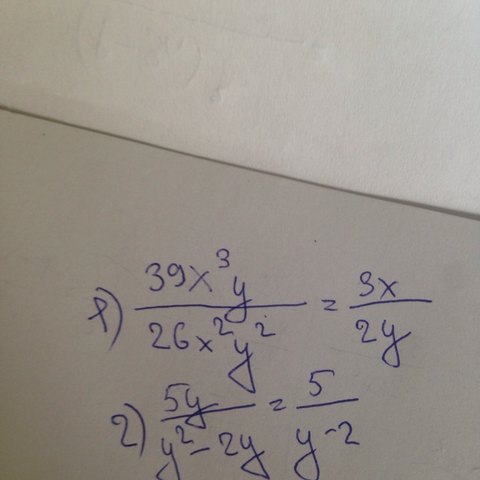 1) 39x³y / 26x²y² = 3x / 2y
2) 5y / y² - 2y = 5 / y - 2